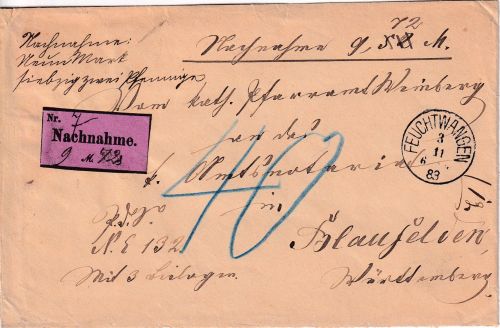 Nachnahme:
Neun Mark
siebzig zwei Pfennige
72
Nachnahme 9 M.
Vom kath. Pfarramt Weinberg
an das
k. Amtsnotariat
in
Blaufelden,
Württemberg
Nr. 7
Nachnahme.
9 M. 72
40
FEUCHTWANGEN
3
11
6
83
N. E 132
Mit 3 Beilagen.